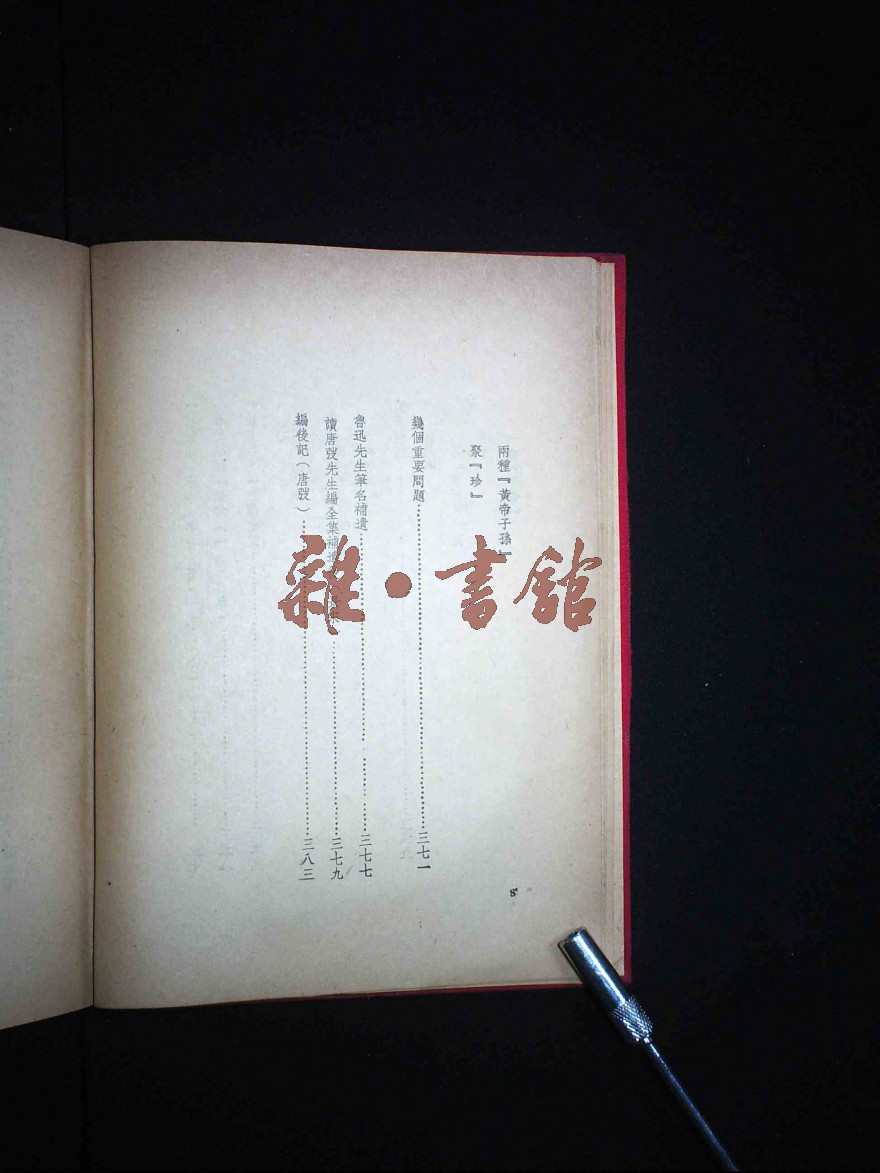 兩種『黃帝子孫』
聚『珍』
幾個重要問題……三七一
魯迅先生筆名補遺……三七七
讀唐弢先生編全集補遺……三七九
編後記(唐弢)……三八三
8
雜•書館